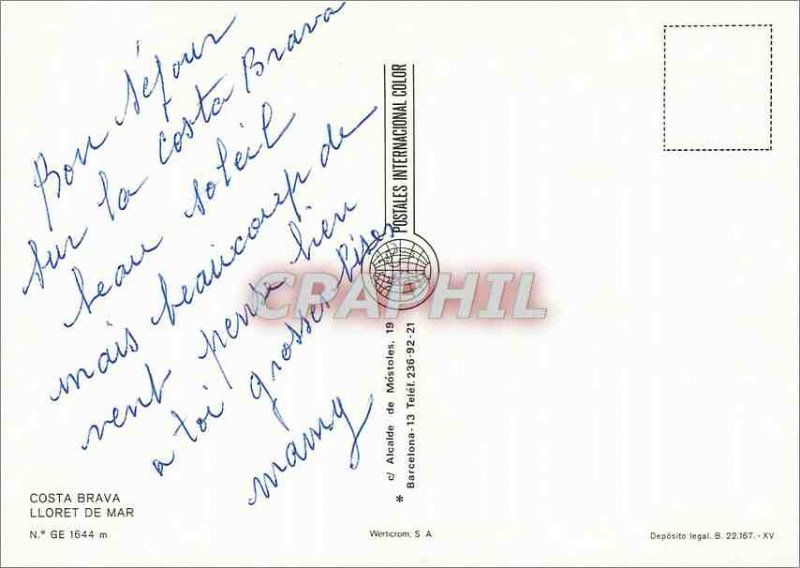 Bon séjour
sur la Costa Brava
beau soleil
mais beaucoup de
vent pense bien
a toi grosses bises
mamy
POSTALES INTERNACIONAL COLOR
CPAPHIL
c/ Alcalde de Móstoles, 19
Barcelona-13 Teléf. 236-92-21
*
COSTA BRAVA
LLORET DE MAR
N.° GE 1644 m
Werticrom, S A
Depósito legal. B. 22.167.-XV